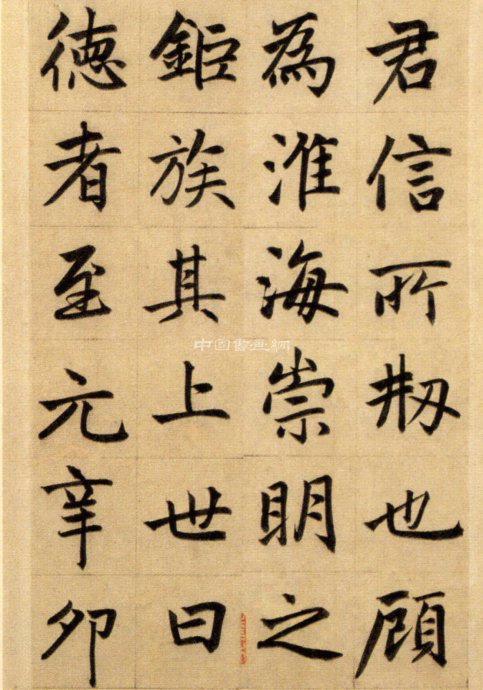 君信所刱也顧
為淮海崇明之
鉅族其上世曰
德者至元辛卯
中国書画網